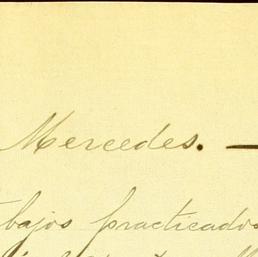 Mercedes. —
bajos practicados